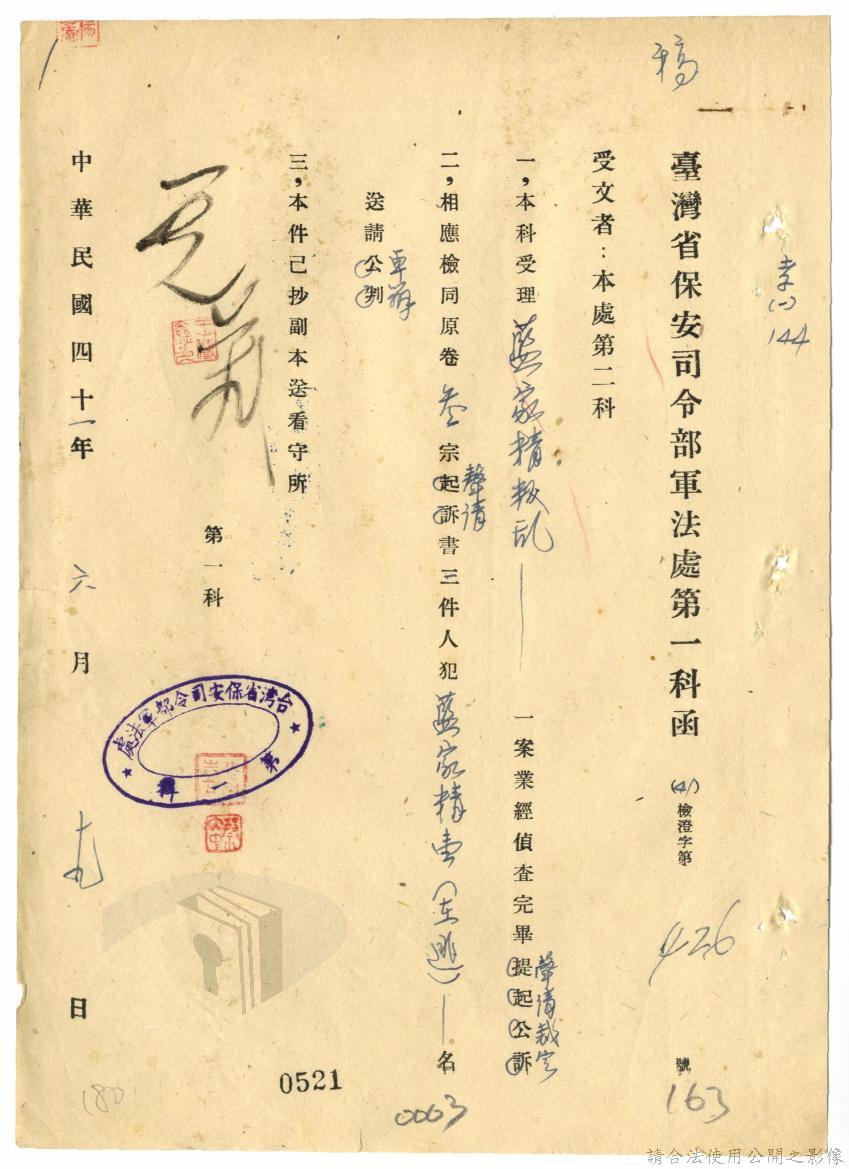 稿
李(一)144
臺灣省保安司令部軍法處第一科函
(41)檢澄字第426號
163
受文者:本處第二科
一,本科受理藍家精叛乱一案業經偵查完畢提起公訴
聲請裁定
二,相應檢同原卷叁宗起訴書三件人犯藍家精壹(在逃)一名
聲請
送請公判
審辦
三,本件已抄副本送看守所
第一科
台灣省保安司令部軍法處
第一科
中華民國四十一年六月十九日
0521
0063
180
請合法使用公開之影像